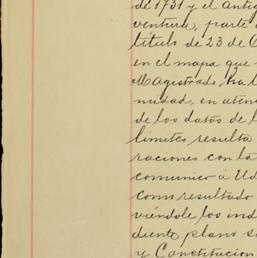 de 1731 y el Antig
ventura, parte d
título de 23 de O
en el mapa que
Magistrado, ha l
nuidad, en aten
de los datos de l
límites resulta
raciones con la
comunico á Ud
como resultado
viéndole los ind
diente plano s
y Constitucion